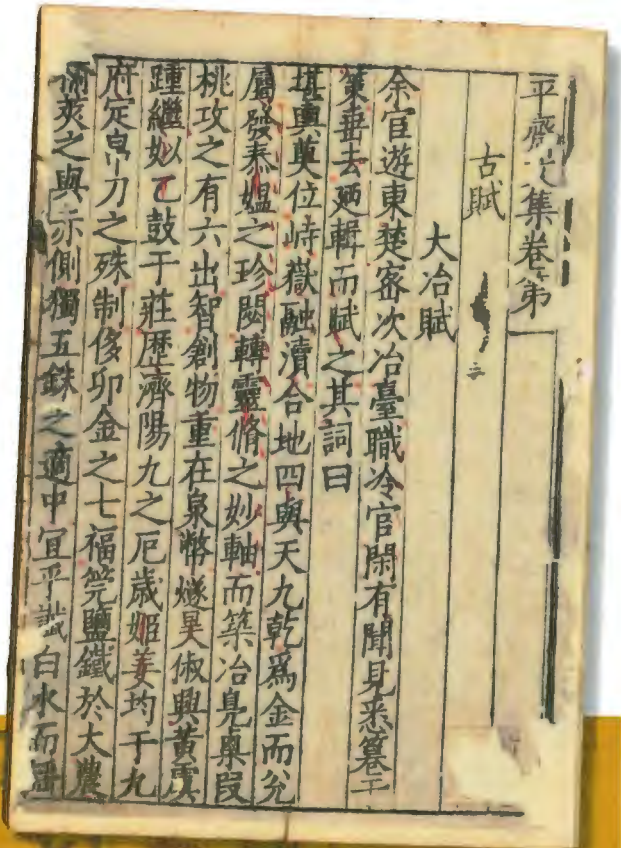 平齋文集卷第
古賦
大冶賦
余宦遊東楚密次冶臺職冷官閑有聞見悉篡于
策垂去廼輯而賦之其詞曰
堪輿奠位峙嶽融瀆合地四與天九乾爲金而兊
屬發泰媼之珍閟轉靈脩之妙軸而築冶鳧㮚段
桃攻之有六出智創物重在泉幣燧昊俶興黃虞
踵繼姒乙鼓于莊歷濟陽九之厄歲姬姜均于九
府定帛刀之殊制侈卯金之七福筦鹽鐵於大農
莢之與赤側獨五銖之適中宜乎讖白水而